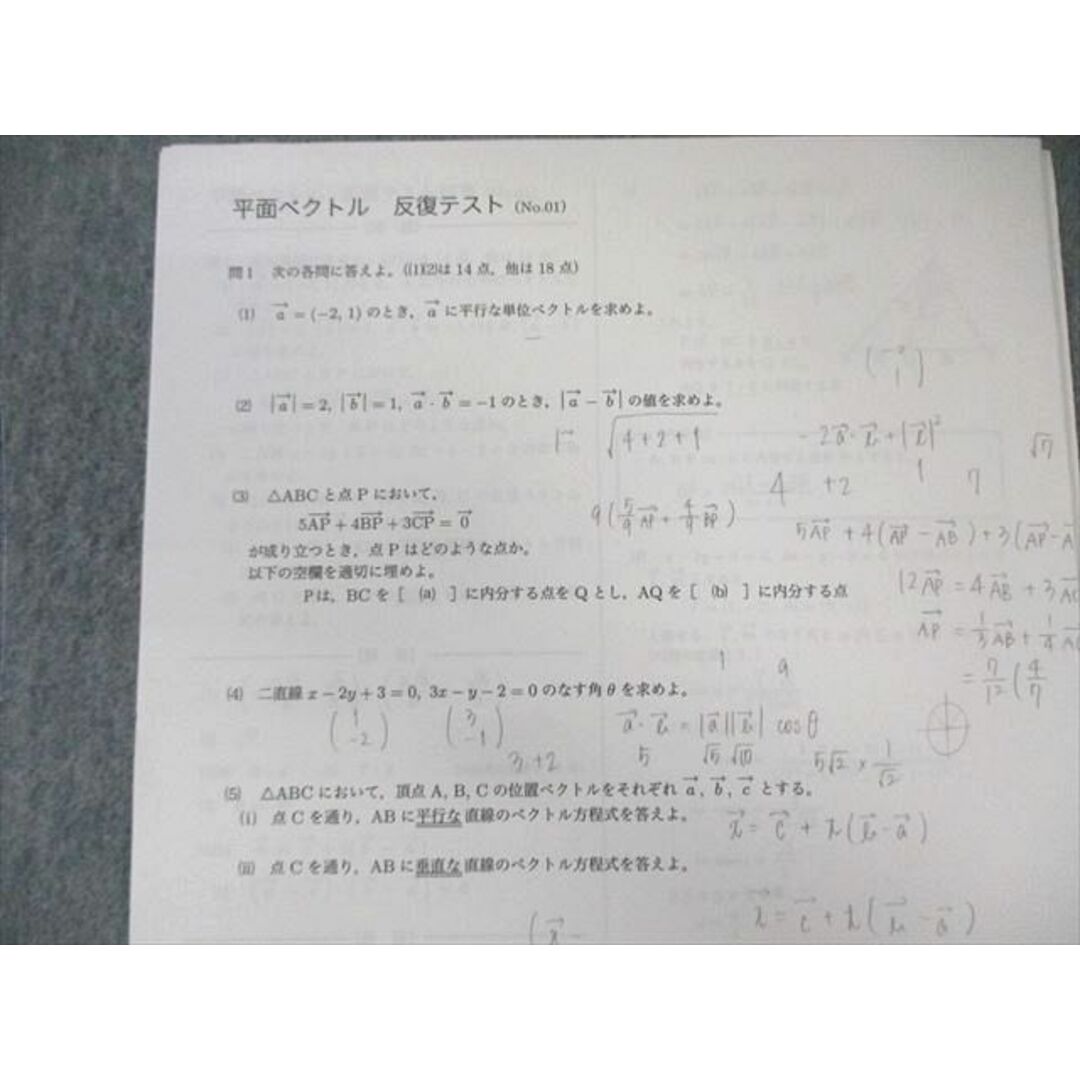 平面ベクトル 反復テスト (No.01)
問1 次の各問に答えよ。((1)(2)は 14 点, 他は 18 点)
(1) $\vec{a}$ = (−2, 1) のとき, $\vec{a}$ に平行な単位ベクトルを求めよ。
(2) |$\vec{a}$| = 2, |$\vec{b}$| = 1, $\vec{a}$・$\vec{b}$ = −1 のとき, |$\vec{a}$ − $\vec{b}$| の値を求めよ。
√4+2+1
−2$\vec{a}$・$\vec{b}$+|$\vec{b}$|²
√7
4 +2 1 7
(3) △ABC と点 P において,
5$\overrightarrow{AP}$ + 4$\overrightarrow{BP}$ + 3$\overrightarrow{CP}$ = $\vec{0}$
9(5/9 $\overrightarrow{AP}$ + 4/9 $\overrightarrow{BP}$)
5$\overrightarrow{AP}$ + 4($\overrightarrow{AP}$ − $\overrightarrow{AB}$) + 3($\overrightarrow{AP}$ − A
が成り立つとき, 点 P はどのような点か。
以下の空欄を適切に埋めよ。
P は, BC を [ (a) ] に内分する点を Q とし, AQ を [ (b) ] に内分する点
12$\overrightarrow{AP}$ = 4$\overrightarrow{AB}$ + 3AC
$\overrightarrow{AP}$ = 1/3 $\overrightarrow{AB}$ + 1/4 AC
= 7/12 (4/7
(4) 二直線 x − 2y + 3 = 0, 3x − y − 2 = 0 のなす角 θ を求めよ。
(1 −2) (3 −1)
$\vec{a}$・$\vec{b}$ = |$\vec{a}$||$\vec{b}$| cosθ
3+2 5 √5 √10 5√2 × 1/√2
(5) △ABC において, 頂点 A, B, C の位置ベクトルをそれぞれ $\vec{a}$, $\vec{b}$, $\vec{c}$ とする。
(i) 点 C を通り, AB に平行な直線のベクトル方程式を答えよ。
$\vec{x}$ = $\vec{c}$ + k($\vec{b}$ − $\vec{a}$)
(ii) 点 C を通り, AB に垂直な直線のベクトル方程式を答えよ。
$\vec{x}$ = $\vec{c}$ + k($\vec{b}$ − $\vec{a}$)
($\vec{x}$ −